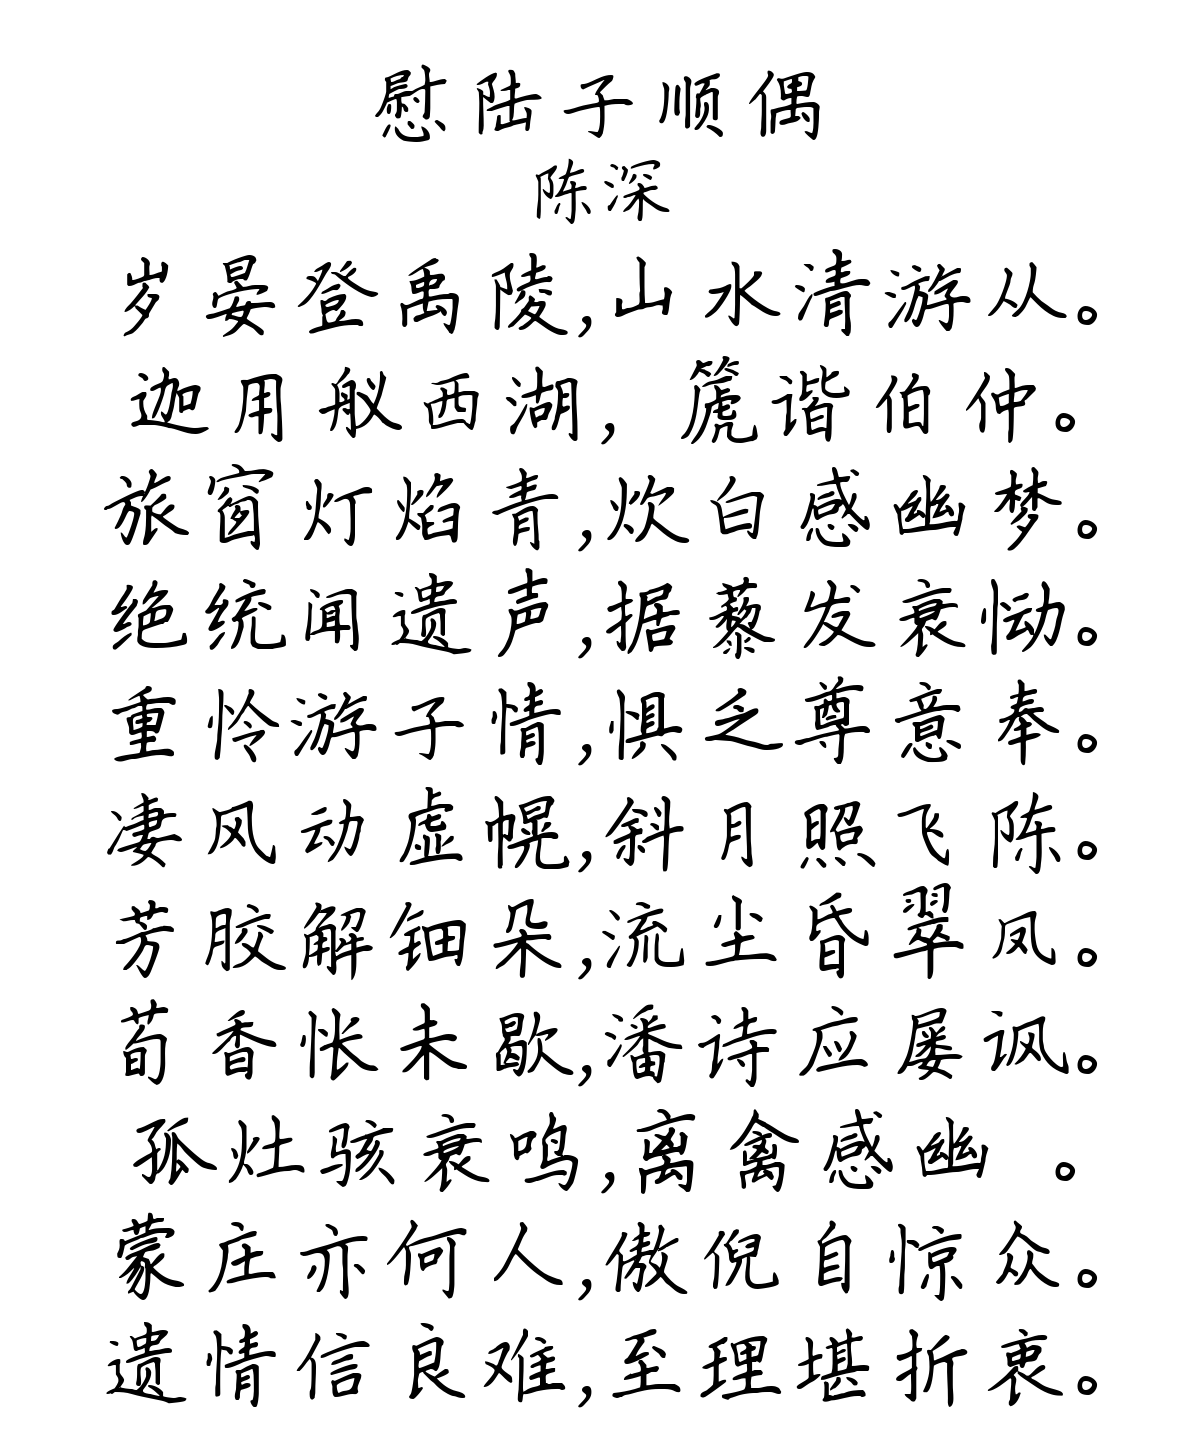 慰陆子顺偶
陈深
岁晏登禹陵,山水清游从。
迦用舣西湖，篪谐伯仲。
旅窗灯焰青,炊白感幽梦。
绝统闻遗声,据藜发衰恸。
重怜游子情,惧乏尊意奉。
凄风动虚幌,斜月照飞陈。
芳胶解钿朵,流尘昏翠凤。
荀香怅未歇,潘诗应屡讽。
孤灶骇衰鸣,离禽感幽 。
蒙庄亦何人,傲倪自惊众。
遗情信良难,至理堪折衷。